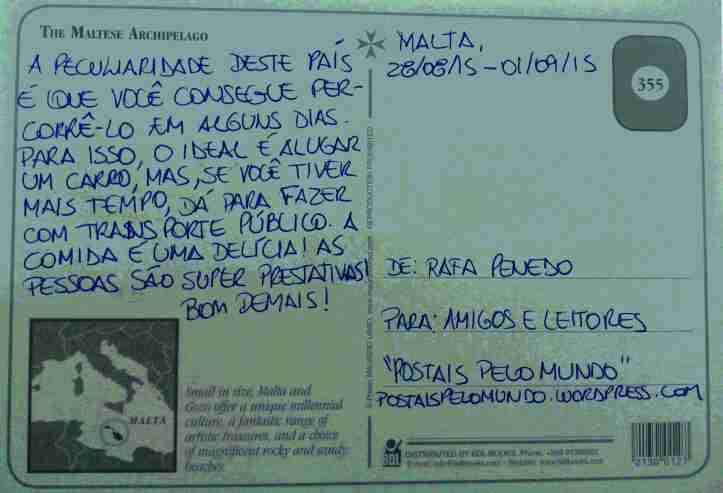 THE MALTESE ARCHIPELAGO
A PECULIARIDADE DESTE PAÍS
É QUE VOCÊ CONSEGUE PER-
CORRÊ-LO EM ALGUNS DIAS.
PARA ISSO, O IDEAL É ALUGAR
UM CARRO, MAS, SE VOCÊ TIVER
MAIS TEMPO, DÁ PARA FAZER
COM TRANSPORTE PÚBLICO. A
COMIDA É UMA DELÍCIA! AS
PESSOAS SÃO SUPER PRESTATIVAS!
BOM DEMAIS!
MALTA
Small in size, Malta and
Gozo offer a unique millennial
culture, a fantastic range of
artistic treasures, and a choice
of magnificent rocky and sandy
beaches.
REPRODUCTION PROHIBITED
MALTA,
28/08/15 - 01/09/15
355
DE: RAFA PENEDO
PARA: AMIGOS E LEITORES
"POSTAIS PELO MUNDO"
POSTAISPELOMUNDO.WORDPRESS.COM
BDL
DISTRIBUTED BY BDL BOOKS. Phone: